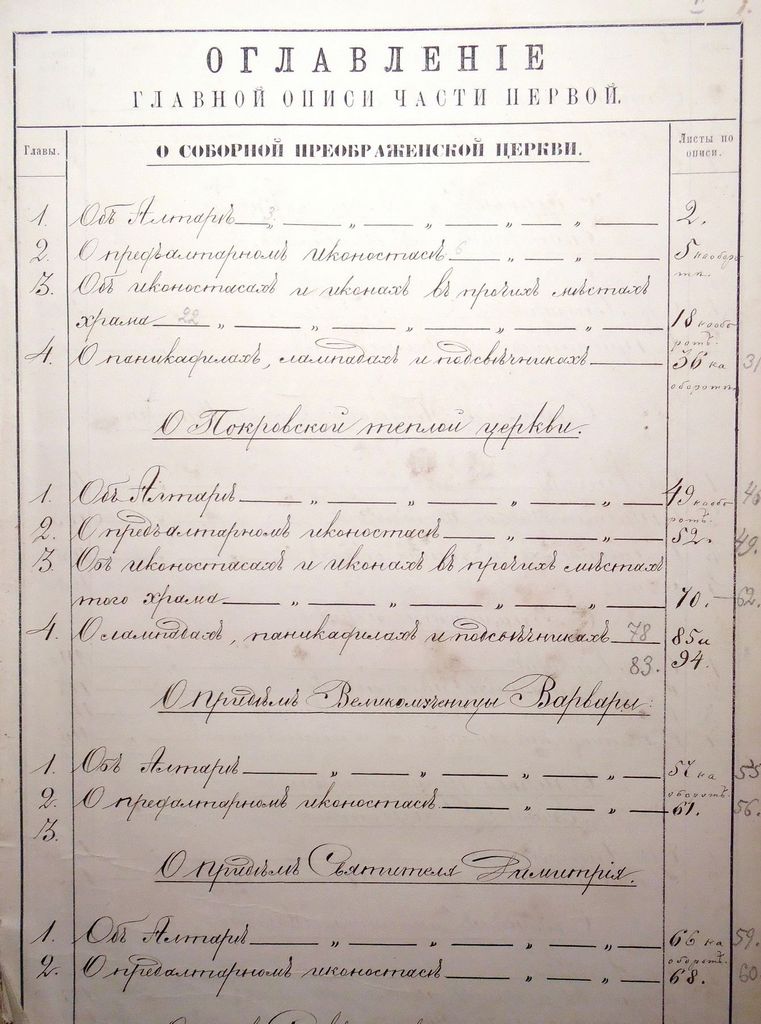 1.
ОГЛАВЛЕНІЕ
ГЛАВНОЙ ОПИСИ ЧАСТИ ПЕРВОЙ.
Главы.
О СОБОРНОЙ ПРЕОБРАЖЕНСКОЙ ЦЕРКВИ.
Листы по описи.
1. Объ Алтарѣ 3. „ „ „ „ 2.
2. О предъалтарномъ иконостасѣ 6 „ „ 5 на оборотѣ.
3. Объ иконостасахъ и иконахъ въ прочихъ мѣстахъ
храма 22 „ „ „ „ „ 18 на оборотѣ.
4. О паникадилахъ, лампадахъ и подсвѣчникахъ 36 на оборотѣ. 31
О Покровской теплой церкви.
1. Объ Алтарѣ „ „ „ „ 49 на оборотѣ. 46
2. О предъалтарномъ иконостасѣ „ „ 52. 49.
3. Объ иконостасахъ и иконахъ въ прочихъ мѣстахъ
того храма „ „ „ „ 70. 62.
4. О лампадахъ, паникадилахъ и подсвѣчникахъ 78 85 и
83. 94.
О придѣлѣ Великомученицы Варвары:
1. Объ Алтарѣ „ „ „ „ 57 на оборотѣ. 55
2. О предалтарномъ иконостасѣ „ „ 61. 56.
3.
О придѣлѣ Святителя Димитрія.
1. Объ Алтарѣ „ „ „ „ 66 на оборотѣ. 59.
2. О предалтарномъ иконостасѣ „ „ 68. 60